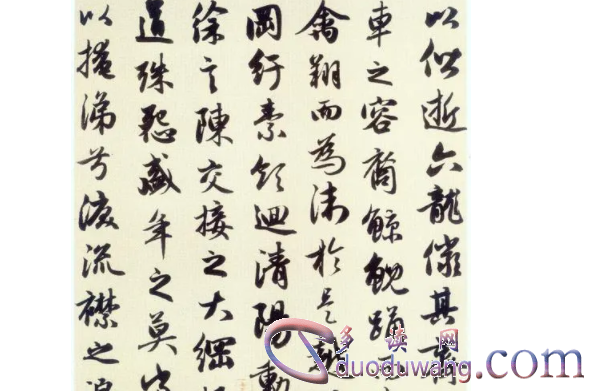 以偕逝六龍儼其齊
車之容裔鯨鯢踊
禽翔而為衛於是越
岡紆素領迴清陽動
徐言陳交接之大綱
道殊怨盛年之莫
以掩涕兮淚流襟之
多读网
duoduwang.com